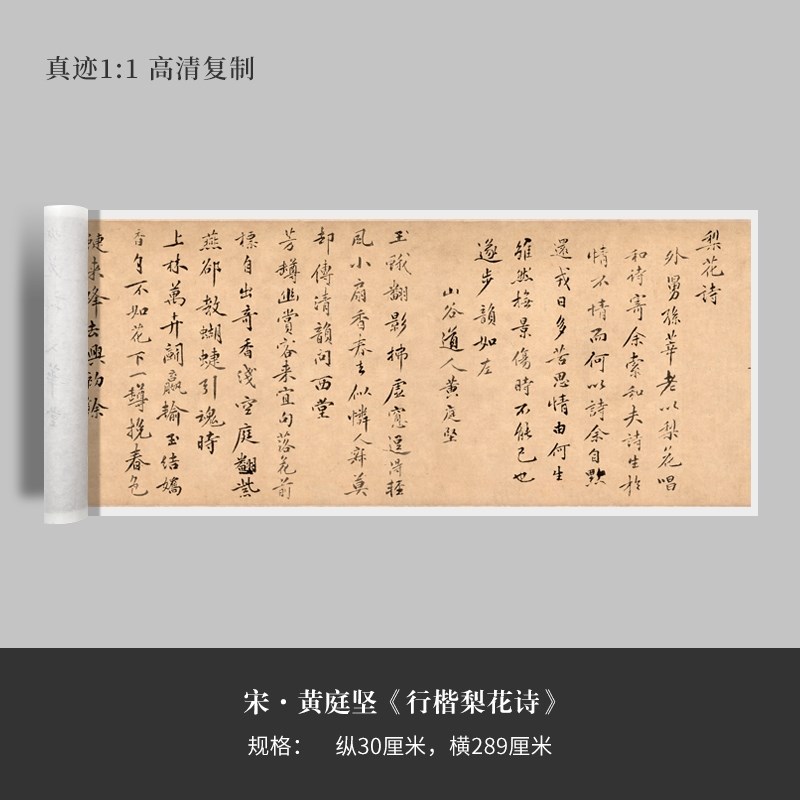 真迹1:1 高清复制
梨花诗
外舅孫莘老以梨花唱
和詩寄余索和夫詩生於
情不情而何以詩余自黜
還戎日多苦思情由何生
雖然極景傷時不能已也
遂步韻如左
山谷道人黄庭坚
玉蛾翻影拂虚寬逞得輕
風小扇香春去似憐人寂莫
却傳清韻向西堂
芳罇幽賞客来宜向落花前
標自出奇香淺空庭翻紫
燕郤教蝴蜨引魂時
上林萬卉鬭贏輸玉结嬌
香自不如花下一罇挽春色
蜨来蜂去興初餘
宋·黄庭坚《行楷梨花诗》
规格： 纵30厘米，横289厘米